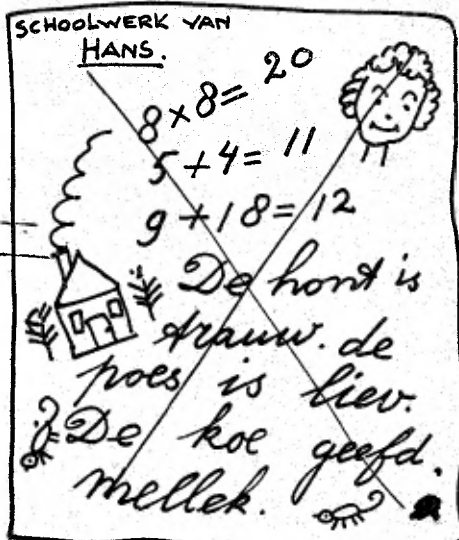 SCHOOLWERK VAN
HANS.
8 x 8 = 20
5 + 4 = 11
9 + 18 = 12
De hont is
trauw. de
poes is liev.
De koe geefd.
mellek.